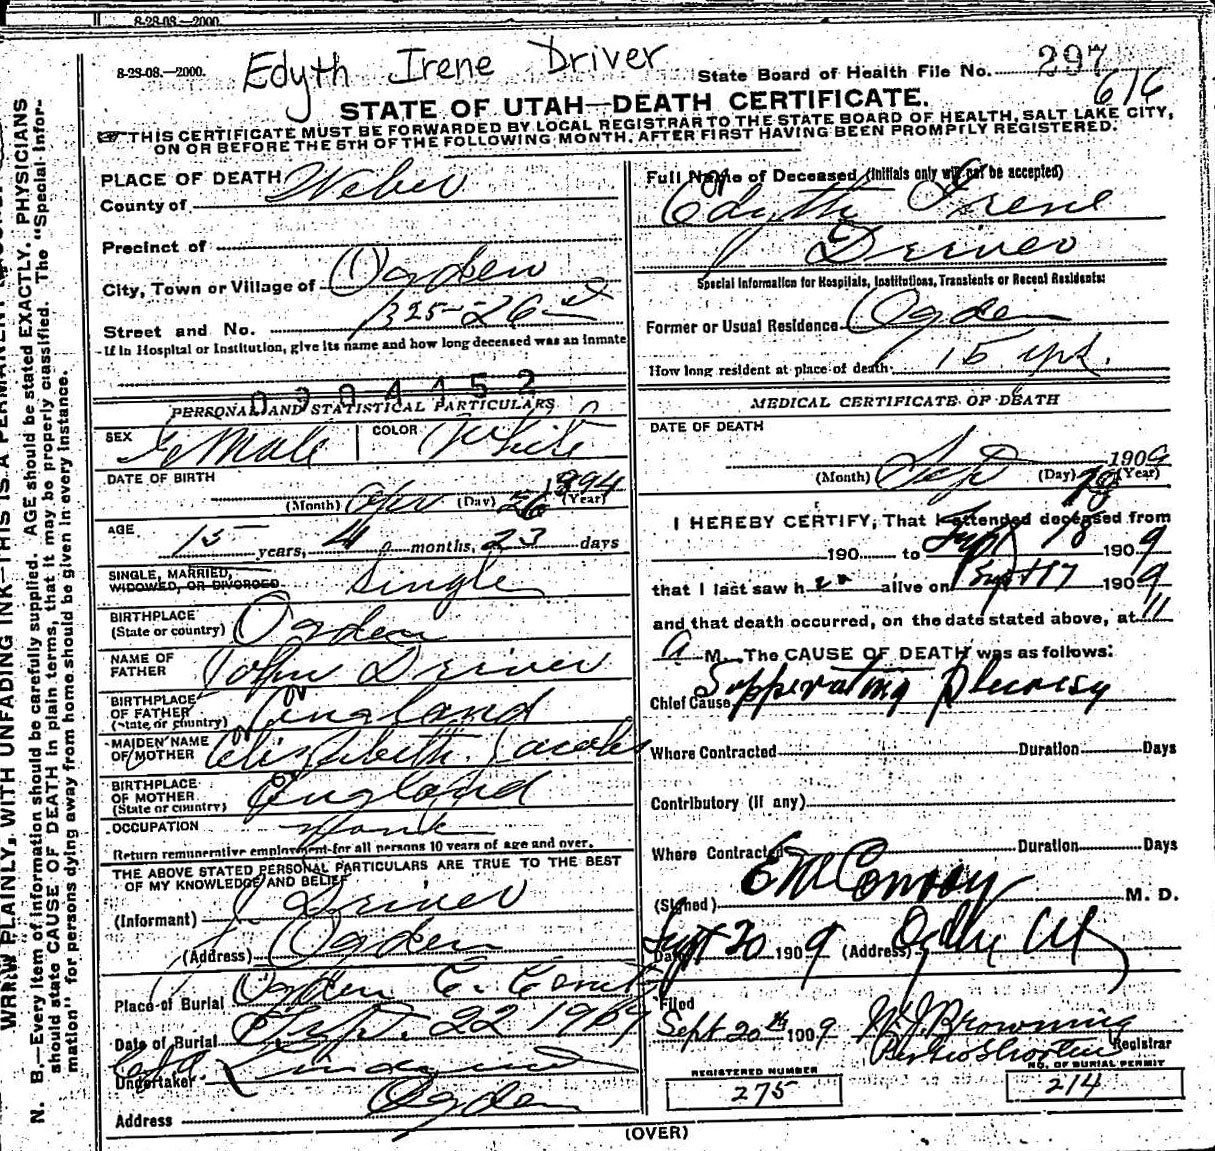 8-28-08.—2000.
8-28-08.—2000.
Edyth Irene Driver
State Board of Health File No. 297
616
STATE OF UTAH—DEATH CERTIFICATE.
THIS CERTIFICATE MUST BE FORWARDED BY LOCAL REGISTRAR TO THE STATE BOARD OF HEALTH, SALT LAKE CITY,
ON OR BEFORE THE 5TH OF THE FOLLOWING MONTH. AFTER FIRST HAVING BEEN PROMPTLY REGISTERED.
PLACE OF DEATH
County of Weber
Precinct of
City, Town or Village of Ogden
Street and No. 1325-26 st
If in Hospital or Institution, give its name and how long deceased was an inmate
0904152
PERSONAL AND STATISTICAL PARTICULARS
SEX Female COLOR White
DATE OF BIRTH
(Month) Apr (Day) 26 1894 (Year)
AGE
15 years, 4 months, 23 days
SINGLE, MARRIED,
WIDOWED, OR DIVORCED Single
BIRTHPLACE
(State or country) Ogden
NAME OF
FATHER John Driver
BIRTHPLACE
OF FATHER
(State or country) England
MAIDEN NAME
OF MOTHER Elizabeth Jacobs
BIRTHPLACE
OF MOTHER
(State or country) England
OCCUPATION
Return remunerative employment for all persons 10 years of age and over.
THE ABOVE STATED PERSONAL PARTICULARS ARE TRUE TO THE BEST
OF MY KNOWLEDGE AND BELIEF
(Informant) J Driver
(Address) Ogden
Place of Burial Ogden C. Cemty
Date of Burial Sept. 22 1909
Undertaker Lindquist
Address Ogden
Full Name of Deceased (Initials only will not be accepted)
Edyth Irene
Driver
Special Information for Hospitals, Institutions, Transients or Recent Residents:
Former or Usual Residence Ogden
How long resident at place of death 15 yrs.
MEDICAL CERTIFICATE OF DEATH
DATE OF DEATH
(Month) Sept (Day) 18 1909 (Year)
I HEREBY CERTIFY, That I attended deceased from
190 to Sept 18 1909
that I last saw her alive on Sept 17 1909
and that death occurred, on the date stated above, at 11
A M. The CAUSE OF DEATH was as follows:
Chief Cause Supperating Pleurisy
Where Contracted Duration Days
Contributory (if any)
Where Contracted Duration Days
(Signed) E M Conroy M. D.
Date Sept 20 1909 (Address) Ogden Ut
Filed
Sept 20th 1909 Browning
Registrar
REGISTERED NUMBER
275
NO. OF BURIAL PERMIT
214
(OVER)
WRITE PLAINLY, WITH UNFADING INK—THIS IS A PERMANENT
N. B.—Every item of information should be carefully supplied. AGE should be stated EXACTLY. PHYSICIANS
should state CAUSE OF DEATH in plain terms, that it may be properly classified. The "Special Infor-
mation" for persons dying away from home should be given in every instance.